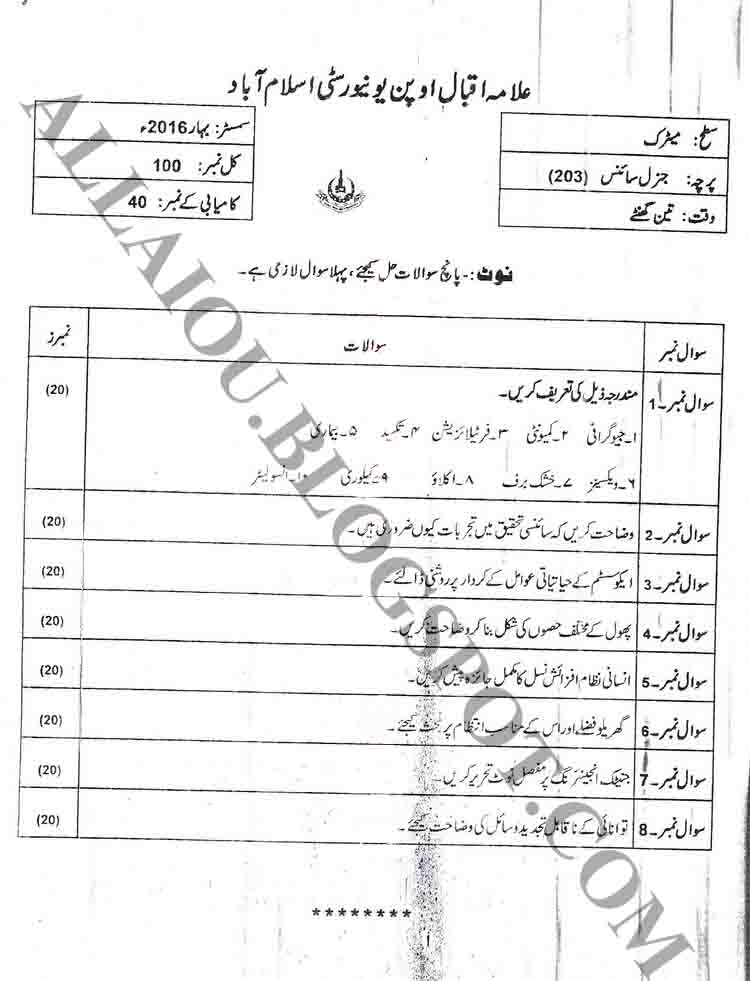 علامہ اقبال اوپن یونیورسٹی اسلام آباد
سطح: میٹرک
پرچہ: جنرل سائنس (203)
وقت: تین گھنٹے
سمسٹر: بہار 2016ء
کل نمبر: 100
کامیابی کے نمبر: 40
نوٹ:- پانچ سوالات حل کیجئے، پہلا سوال لازمی ہے۔
سوال نمبر سوالات نمبرز
سوال نمبر۔1 مندرجہ ذیل کی تعریف کریں۔ (20)
۱۔جیوگرافی ۲۔کمیونٹی ۳۔فرٹیلائزیشن ۴۔تکسید ۵۔بیماری
۶۔ویکسینز ۷۔خشک برف ۸۔اکلاؤ ۹۔کیلوری ۱۰۔انسولیٹر
سوال نمبر۔2 وضاحت کریں کہ سائنسی تحقیق میں تجربات کیوں ضروری ہیں۔ (20)
سوال نمبر۔3 ایکوسسٹم کے حیاتیاتی عوامل کے کردار پر روشنی ڈالئے۔ (20)
سوال نمبر۔4 پھول کے مختلف حصوں کی شکل بنا کر وضاحت کریں۔ (20)
سوال نمبر۔5 انسانی نظام افزائش نسل کا مکمل جائزہ پیش کریں۔ (20)
سوال نمبر۔6 گھریلو فضلے اور اس کے مناسب انتظام پر بحث کیجئے۔ (20)
سوال نمبر۔7 جنیٹک انجینئرنگ پر مفصل نوٹ تحریر کریں۔ (20)
سوال نمبر۔8 توانائی کے ناقابل تجدید وسائل کی وضاحت کیجئے۔ (20)
********
۱
ALLAIOU.BLOGSPOT.COM